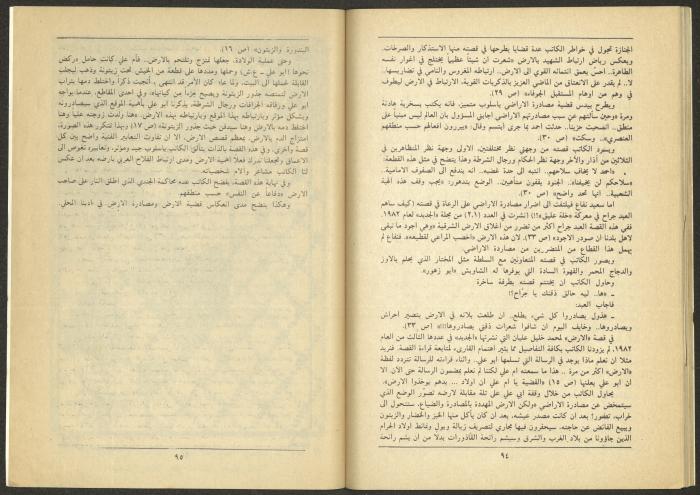 الجنازة تجول في خواطر الكاتب عدة قضايا يطرحها في قصته منها الاستذكار والصرخات.
ويعكس رياض ارتباط الشهيد بالارض «شعرت ان شيئاً عظيماً يختلج في اغوار نفسه
الطاهرة.. احس بعمق انتمائه القوي الى الارض.. ارتباطه المغروس والنامي في تضاريسها..
لا.. لم يقدر على الانعتاق من الماضي العزيز بالذكريات القوية، الارتباط في الارض ليطوف
في وهم من اوهام المستقبل الجوفاء» (ص ٢٩).
ويطرح بيدس قضية مصادرة الاراضي باسلوب متميز، فانه يكتب بسخرية هادئة
ومرة «وحين سألتهم عن سبب مصادرتهم الاراضي اجابني المسؤول بان العالم ليس مبنياً على
منطق.. انضحيت حزيناً.. حدثت احمد بما جرى ابتسم وقال: «يبررون افعالهم حسب منطقهم
العنصري».. وسكت» (ص ٣٠).
ويسرد الكاتب قصته من وجهتي نظر مختلفتين، الاولى وجهة نظر المتظاهرين في
الثلاثين من آذار والأخر وجهة نظر الحكام ورجال الشرطة وهذا يتضح في مثل هذه القطعة:
«احمد لا يخاف سلاحهم.. انتبه الى حدة غضبه.. انه يندفع الى الصفوف الامامية..
«سلاحكم لن يخيفنا».. الجنود يقفون متأهبين.. الوضع يتدهور: «يجب وقف هذه الهبة
الشعبية.. انها تحد واضح» (ص ٣٠).
اما سعيد نفاع فيلتفت الى اضرار مصادرة الاراضي على الرعاة في قصته (كيف ساهم
العبد جراح في معركة «خلة عليق»!!) (نشرت في العدد (٢،١) من مجلة «الجديد» لعام ١٩٨٢.
ففي هذه القصة العبد جراح اكثر من تضرر من اغلاق الارض الشرقية «وهي اجود ما تبقى
لاهل بلدنا ان صودر الاجود» (ص ٣٣)، لان هذه الارض «اخصب المراعي لقطيعه». فنفاع لم
يهمل هذا القطاع من المتضررين من مصادرة الاراضي.
ويصور الكاتب في قصته المتعاونين مع السلطة مثل المختار الذي يحلم بالاوز
والدجاج المحمر والقهوة السادة التي يوفرها له الشاويش «ابو زهور».
وحاول الكاتب ان يختتم قصته بطرفة ساخرة
ـ «ها.. ليه حالق ذقنك يا جرّاح؟!
فاجاب العبد:
ـ هذول يصادروا كل شيء يطلع.. ان طلعت بلانه في الارض بتصير احراش
ويصادروها.. وخايف اليوم ان شافوا شعرات ذقني يصادروها!!!» (ص ٣٣).
في قصة «الارض» لمحمد خليل عليان التي نشرتها «الجديد» في عددها الثالث من العام
١٩٨٢، لم يزودنا الكاتب بكافة التفاصيل مما يثير اهتمام القارىء لمتابعة قراءة القصة. فنريد
مثلا ان نعلم ماذا يوجد في الرسالة التي تسلمها ابو علي.. واثناء قراءته للرسالة تتردد لفظة
«الارض» اكثر من مرة .. هذا ما سمعته ام علي لكننا لم نعلم بمضمون الرسالة حتى الان الا
ان ابو علي يعلنها (ص ١٥) «القضية يا ام علي ان اولاد ... بدهم يوخذوا الارض».
يحاول الكاتب من خلال وقفة ابي علي على تلة مقابلة لارضه تصوّر الوضع الذي
سيتمخض عن مصادرة الاراضي «ولكن الارض المهددة بالمصادرة والضياع، ستتحول الى
خراب، تصّور! بعد ان كانت مصدر عيشه، بعد ان كان يأكل منها الخبز والخضار والزيتون
ويبيع الفائض عن حاجته، سيحفرون فيها مجاري لتصريف زبالة وبول وغائط اولاد الحرام
الذين جاؤونا من بلاد الغرب والشرق وسيشم رائحة القاذورات بدلا من ان يشم رائحة
٩٤
البندورة والزيتون» (ص ١٦).
وحتى عملية الولادة، جعلها تمتزج وتلتحم بالارض.. فأم علي كانت حامل «ركض
نحوها (ابو علي ـ ع.ش) وحملها ومددها على قطعة من الخيش تحت زيتونة وذهب ليجلب
القابلة فحملها الى البيت. ولما عاد كان الامر قد انتهى. انجبت ذكراً واختلط دمها بتراب
الارض لتمتصه جذور الزيتونة ويصبح جزءاً من كيانها»، وفي احدى المقاطع، عندما يواجه
ابو علي ورفاقه الجرافات ورجال الشرطة، يذكرنا ابو علي بأهمية الموقع الذي سيصادرونه
وبشكل مؤثر وبارتباطه بهذا الموقع وبارتباطه بهذه الارض. «هنا ولدت زوجته عليا وهنا
اختلط دمه بالارض وهنا سيدفن حيث جذور الزيتونة» (ص ١٧) وبهذا تتكرر هذه الصورة،
امتزاج الدم بالارض، بمعظم قصص الارض، الا ان تفاوت التعابير الفنية واضح بين كل
قصة وأخرى. وفي هذه القصة بالذات يتألق الكاتب باسلوب جيد ومؤثر، وتعابيره تغوص الى
الاعماق وتجعلنا ندرك فعلا اهمية الارض ومدى ارتباط الفلاح العربي بارضه بعد ان عكس
لنا الكاتب مشاعر وآلام شخصياته.
وفي نهاية هذه القصة، يفضح الكاتب عدم محاكمة الجندي الذي اطلق النار على صاحب
الارض «دفاعا عن النفس» حسب منطقهم
وهكذا يتضح مدى انعكاس قضية الارض ومصادرة الارض في ادبنا المحلي.
٩٥